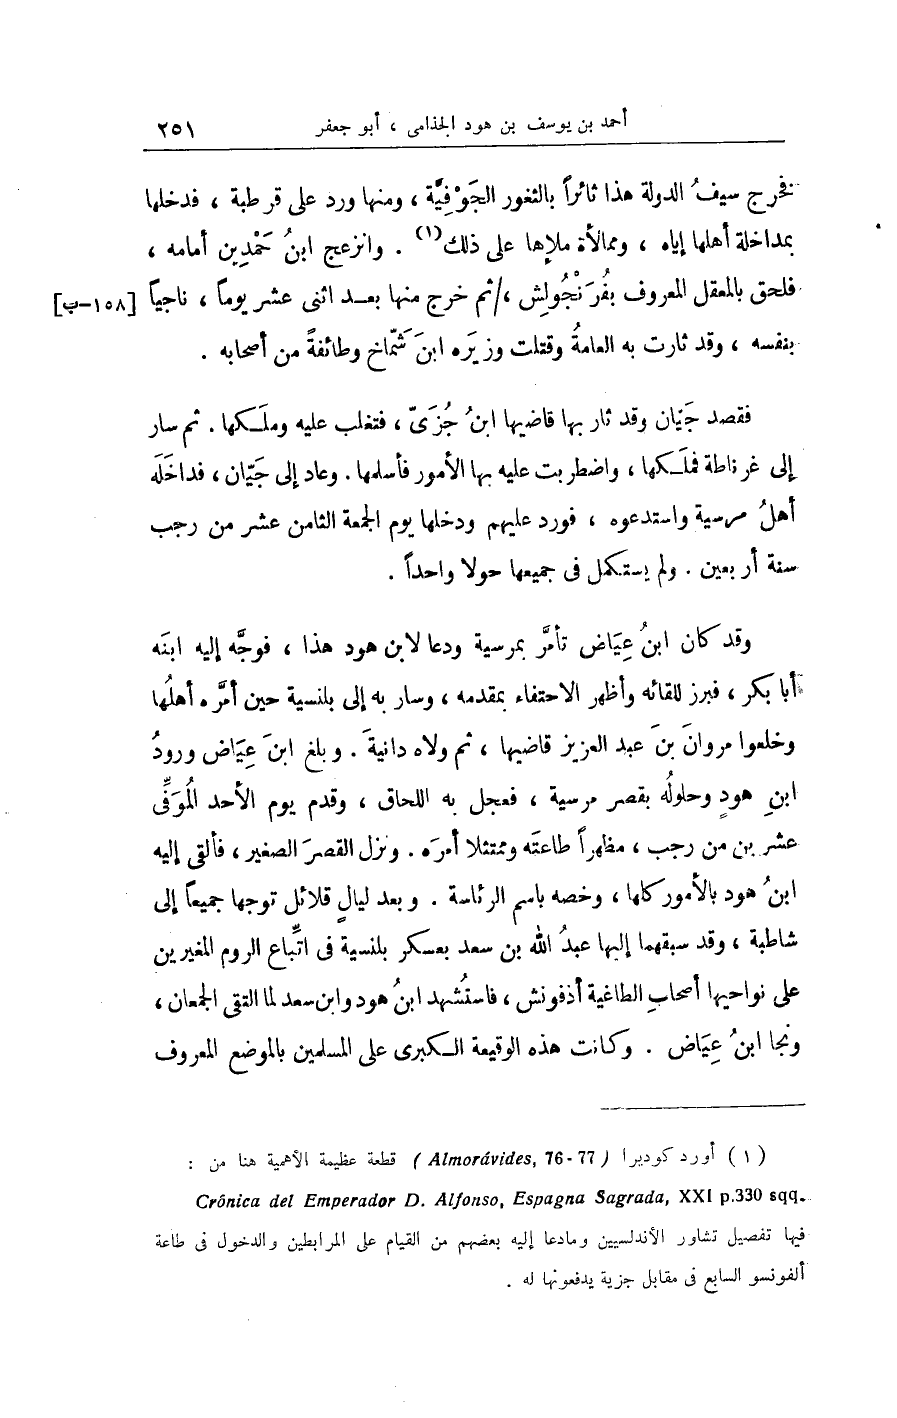 أحمد بن يوسف بن هود الجذامى ، أبو جعفر ٢٥١
فخرج سيفُ الدولة هذا ثائراً بالثغور الجَوْفِيَّة ، ومنها ورد على قرطبة ، فدخلها
بمداخلة أهلها إياه ، وممالأة ملإها على ذلك(١) . وانزعج ابنُ حَمْدِين أمامه ،
فلحق بالمعقل المعروف بفُرَنْجُولِش ،/ثم خرج منها بعد اثنى عشر يوماً ، ناجياً [١٥٨–ب]
بنفسه ، وقد ثارت به العامةُ وقتلت وزيرَه ابنَ شَمَّاخ وطائفةً من أصحابه .
فقصد جَيَّان وقد ثار بها قاضيها ابنُ جُزَىّ ، فتغلب عليه وملكها . ثم سار
إلى غرناطة فملكها ، واضطربت عليه بها الأمور فأسلمها . وعاد إلى جَيَّان ، فداخَلَه
أهلُ مرسية واستدعوه ، فورد عليهم ودخلها يوم الجمعة الثامن عشر من رجب
سنة أربعين . ولم يستكمل فى جميعها حولا واحداً .
وقد كان ابنُ عِيَاض تأمَّر بمرسية ودعا لابن هود هذا ، فوجَّه إليه ابنَه
أبا بكر ، فبرز للقائه وأظهر الاحتفاء بمقدمه ، وسار به إلى بلنسية حين أمَّره أهلُها
وخلعوا مروانَ بنَ عبد العزيز قاضيها ، ثم ولاه دانيةَ . وبلغ ابنَ عِيَاض ورودُ
ابنِ هودٍ وحلولُه بقصر مرسية ، فعجل به اللحاق ، وقدم يوم الأحد المُوَفِّى
عشرين من رجب ، مظهراً طاعتَه وممتثلا أمرَه . ونزل القصرَ الصغير ، فألقى إليه
ابنُ هود بالأمور كلها ، وخصه باسم الرئاسة . وبعد ليالٍ قلائل توجها جميعاً إلى
شاطبة ، وقد سبقهما إليها عبدُ الله بن سعد بعسكر بلنسية فى اتِّباع الروم المغيرين
على نواحيها أصحابِ الطاغية أذفونش ، فاستُشهد ابنُ هود وابن سعد لما التقى الجمعان ،
ونجا ابنُ عِيَاض . وكانت هذه الوقيعة الكبرى على المسلمين بالموضع المعروف
(١) أورد كوديرا (Almorávides, 76-77) قطعة عظيمة الأهمية هنا من :
Crônica del Emperador D. Alfonso, Espagna Sagrada, XXI p.330 sqq.
فيها تفصيل تشاور الأندلسيين ومادعا إليه بعضهم من القيام على المرابطين والدخول فى طاعة
ألفونسو السابع فى مقابل جزية يدفعونها له .